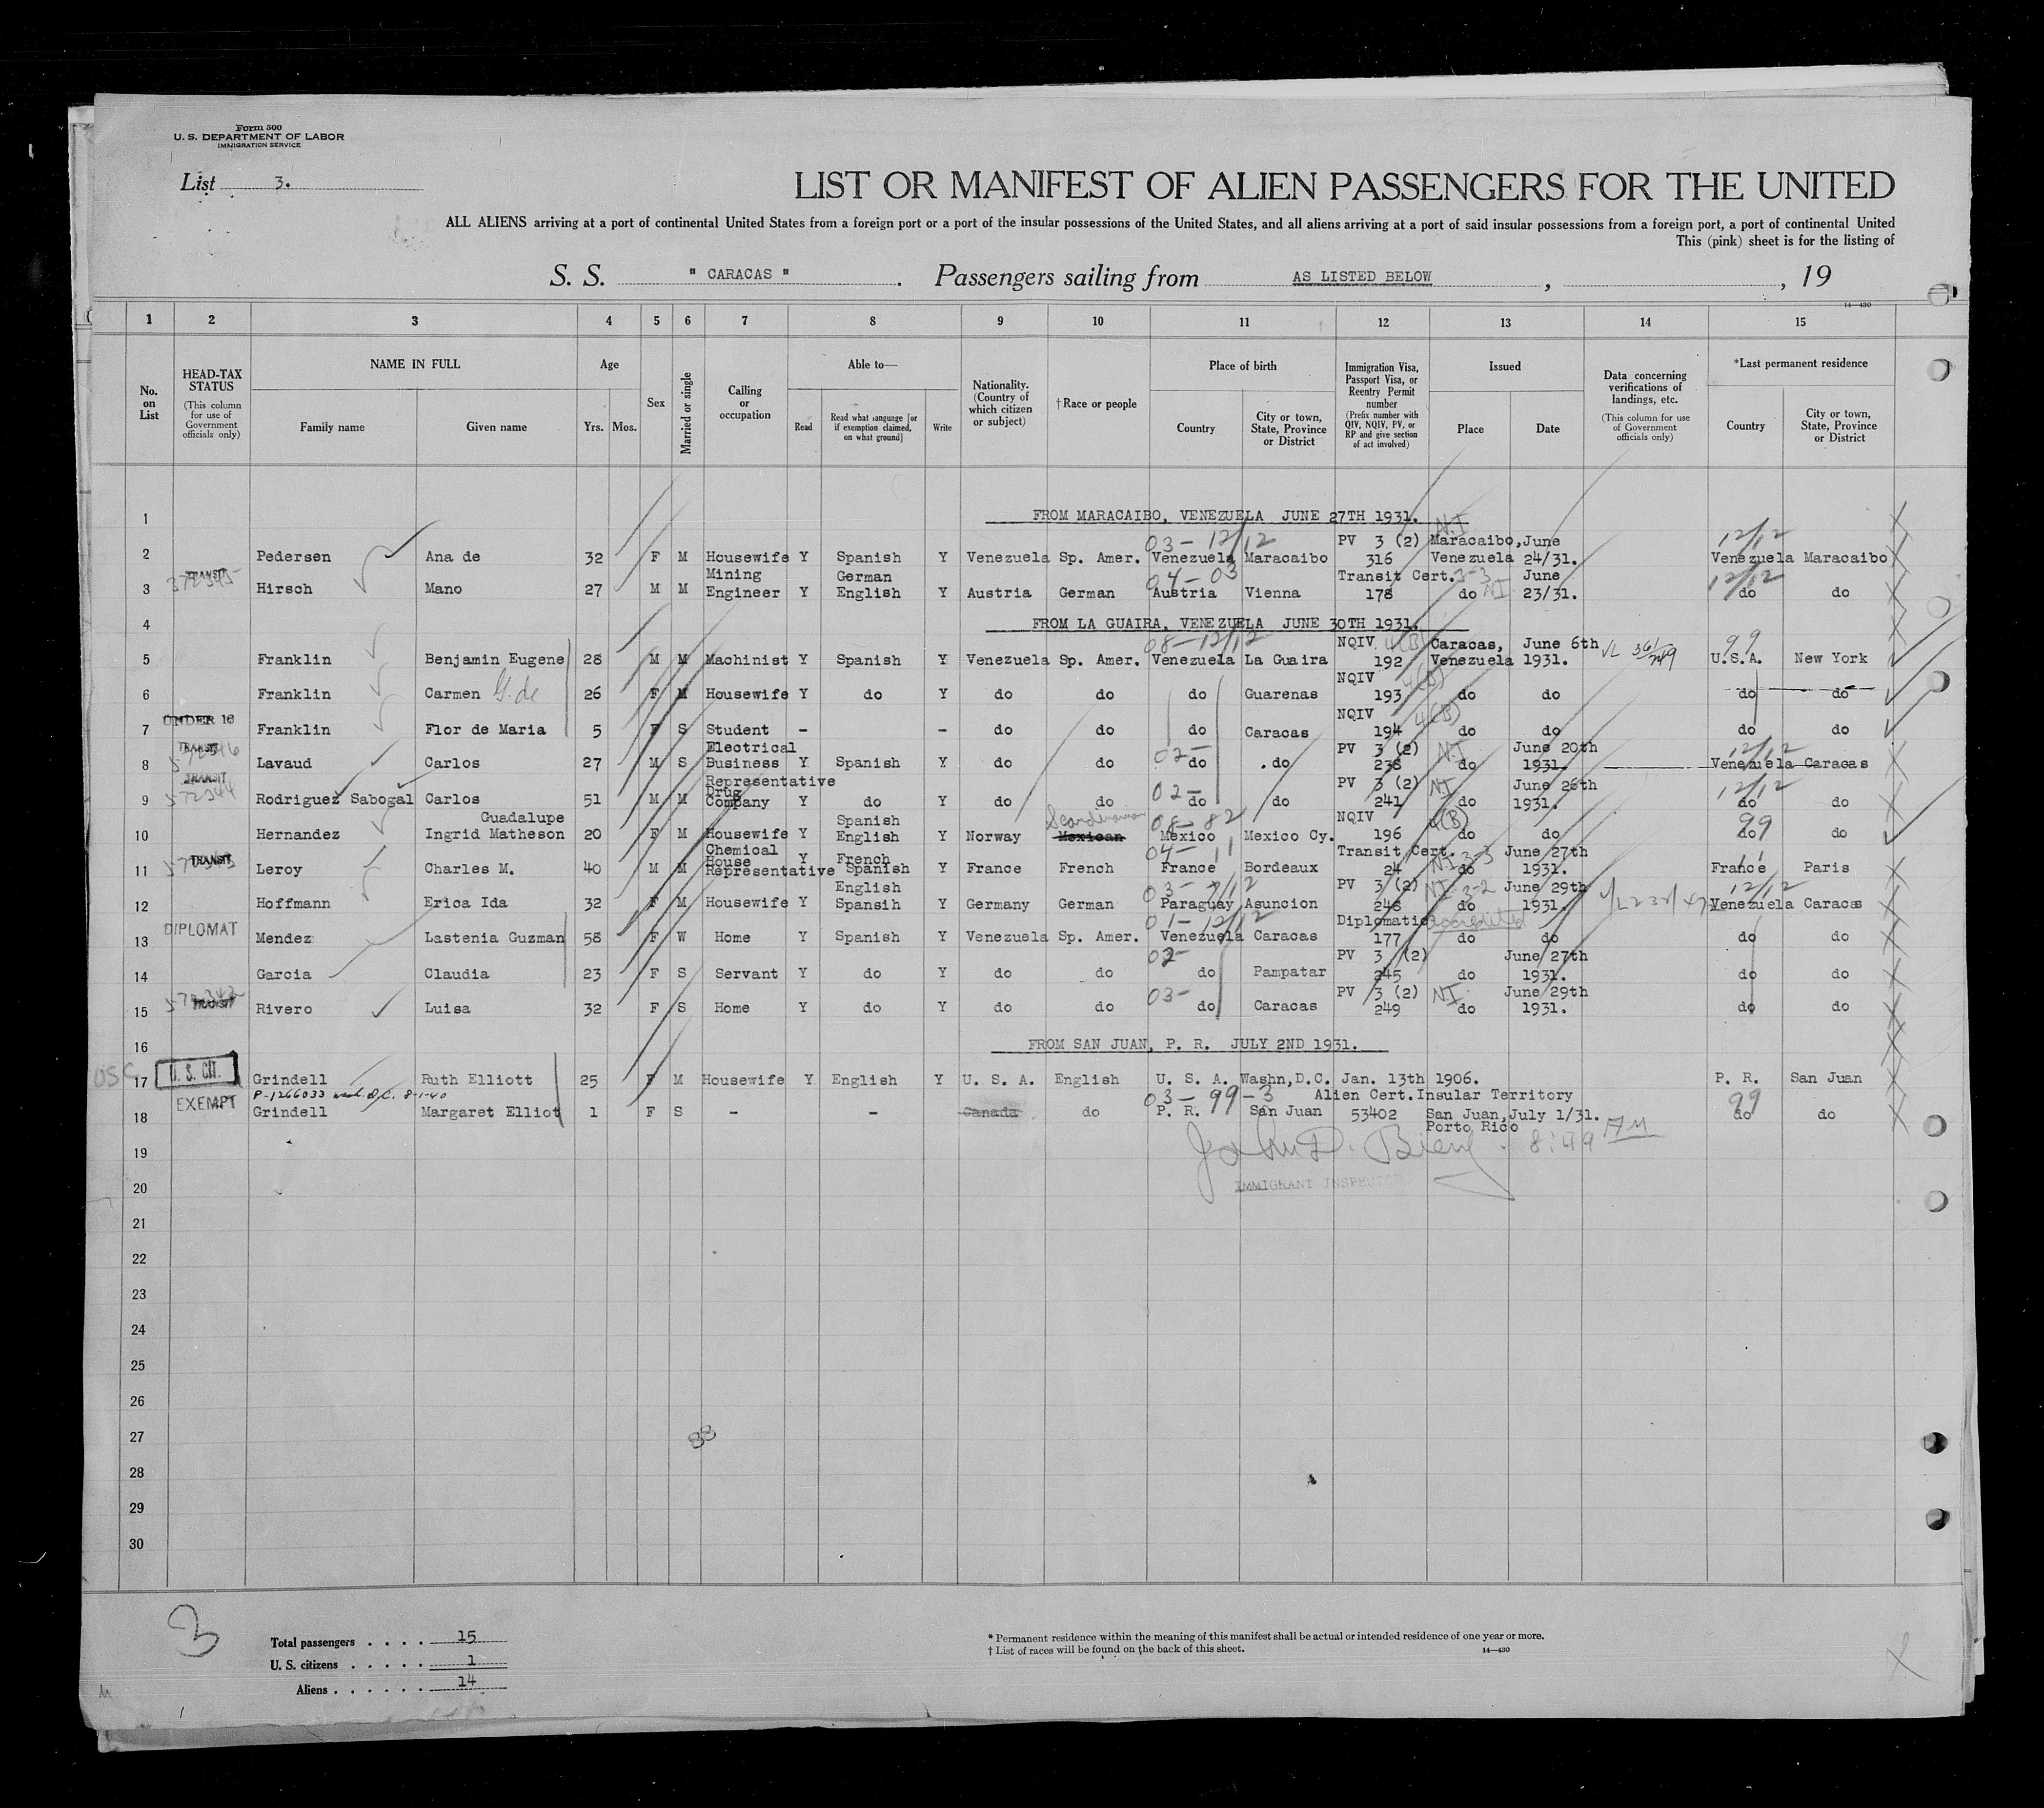 Form 500
U. S. DEPARTMENT OF LABOR
IMMIGRATION SERVICE
List 3.
LIST OR MANIFEST OF ALIEN PASSENGERS FOR THE UNITED
ALL ALIENS arriving at a port of continental United States from a foreign port or a port of the insular possessions of the United States, and all aliens arriving at a port of said insular possessions from a foreign port, a port of continental United
This (pink) sheet is for the listing of
S. S. " CARACAS " . Passengers sailing from AS LISTED BELOW , , 19
14—430
1 2 3 4 5 6 7 8 9 10 11 12 13 14 15
No. on List
HEAD-TAX STATUS (This column for use of Government officials only)
NAME IN FULL Family name Given name
Age Yrs. Mos.
Sex
Married or single
Calling or occupation
Able to— Read Read what language [or if exemption claimed, on what ground] Write
Nationality. (Country of which citizen or subject)
†Race or people
Place of birth Country City or town, State, Province or District
Immigration Visa, Passport Visa, or Reentry Permit number (Prefix number with QIV, NQIV, PV, or RP and give section of act involved)
Issued Place Date
Data concerning verifications of landings, etc. (This column for use of Government officials only)
*Last permanent residence Country City or town, State, Province or District
1 FROM MARACAIBO, VENEZUELA JUNE 27TH 1931. NI
03- 12/12 PV 3 (2) Maracaibo, June 12/12
2 Pedersen Ana de 32 F M Housewife Y Spanish Y Venezuela Sp. Amer. Venezuela Maracaibo 316 Venezuela 24/31. Venezuela Maracaibo
TRANSIT Mining German 04- 03 Transit Cert. 3-3 June 12/12
3 Hirsch Mano 27 M M Engineer Y English Y Austria German Austria Vienna 178 do NI 23/31. do do
4 FROM LA GUAIRA, VENEZUELA JUNE 30TH 1931.
08-12/12 NQIV 4(B) Caracas, June 6th VL 99
5 Franklin Benjamin Eugene 28 M M Machinist Y Spanish Y Venezuela Sp. Amer. Venezuela La Guaira 192 Venezuela 1931. U.S.A. New York
NQIV 4(B)
6 Franklin Carmen G. de 26 F M Housewife Y do Y do do do Guarenas 193 do do do do
UNDER 16 NQIV 4(B)
7 Franklin Flor de Maria 5 F S Student - - do do do Caracas 194 do do do do
TRANSIT Electrical 02- PV 3 (2) NI June 20th 12/12
8 Lavaud Carlos 27 M S Business Y Spanish Y do do do .do 238 do 1931. Venezuela Caracas
TRANSIT 572344 Representative Drug 02- PV 3 (2) NI June 26th 12/12
9 Rodriguez Sabogal Carlos 51 M M Company Y do Y do do do do 241 do 1931. do do
Guadalupe Spanish Scandinavian 08- 82 NQIV 4(B) 99
10 Hernandez Ingrid Matheson 20 F M Housewife Y English Y Norway Mexican Mexico Mexico Cy. 196 do do do do
TRANSIT Chemical House French 04- 11 Transit Cert. NI 3-3 June 27th
11 Leroy Charles M. 40 M M Representative Y Spanish Y France French France Bordeaux 24 do 1931. France Paris
English 03- PV 3 (2) NI 3-2 June 29th 12/12
12 Hoffmann Erica Ida 32 F M Housewife Y Spansih Y Germany German Paraguay Asuncion 248 do 1931. Venezuela Caracas
DIPLOMAT 01- 12/12 Diplomatic accredited
13 Mendez Lastenia Guzman 58 F W Home Y Spanish Y Venezuela Sp. Amer. Venezuela Caracas 177 do do do do
02- PV 3 (2) June 27th
14 Garcia Claudia 23 F S Servant Y do Y do do do Pampatar 245 do 1931. do do
TRANSIT 03- PV 3 (2) NI June 29th
15 Rivero Luisa 32 F S Home Y do Y do do do Caracas 249 do 1931. do do
16 FROM SAN JUAN, P. R. JULY 2ND 1931.
USC U. S. CIT.
17 Grindell Ruth Elliott 25 F M Housewife Y English Y U. S. A. English U. S. A. Washn,D.C. Jan. 13th 1906. P. R. San Juan
EXEMPT P-1266033 Wash. D.C. 8-1-40 03- 99-3 Alien Cert.Insular Territory 99
18 Grindell Margaret Elliot 1 F S - - Canada do P. R. San Juan 53402 San Juan,July 1/31. do do
Porto Rico
19 John D. 8:49 AM
20 IMMIGRANT INSPECTOR
21
22
23
24
25
26
27 33
28
29
30
3
Total passengers . . . . 15
U. S. citizens . . . . . 1
Aliens . . . . . . 14
* Permanent residence within the meaning of this manifest shall be actual or intended residence of one year or more.
† List of races will be found on the back of this sheet. 14—430